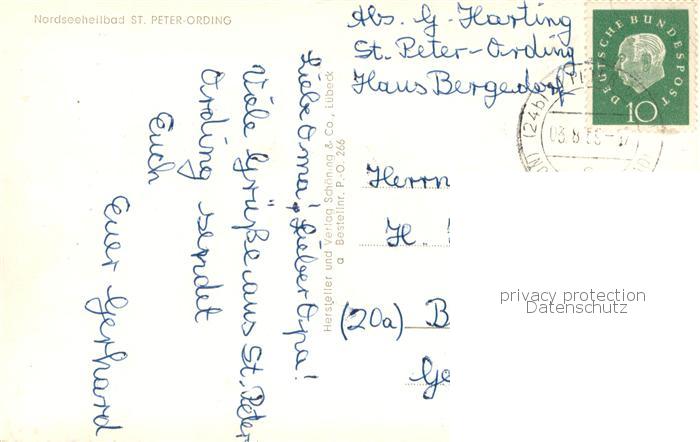 Nordseeheilbad ST. PETER-ORDING
Abs. G. Harting
St. Peter-Ording
Haus Bergedorf
DEUTSCHE BUNDESPOST
10
Liebe Oma! Lieber Opa!
Viele Grüße aus St. Peter
Ording sendet
Euch
Euer Gerhard
Hersteller und Verlag Schöning & Co., Lübeck
a Bestellnr. P.-O. 266
Herrn
H.
(20a) B
Ge
privacy protection
Datenschutz